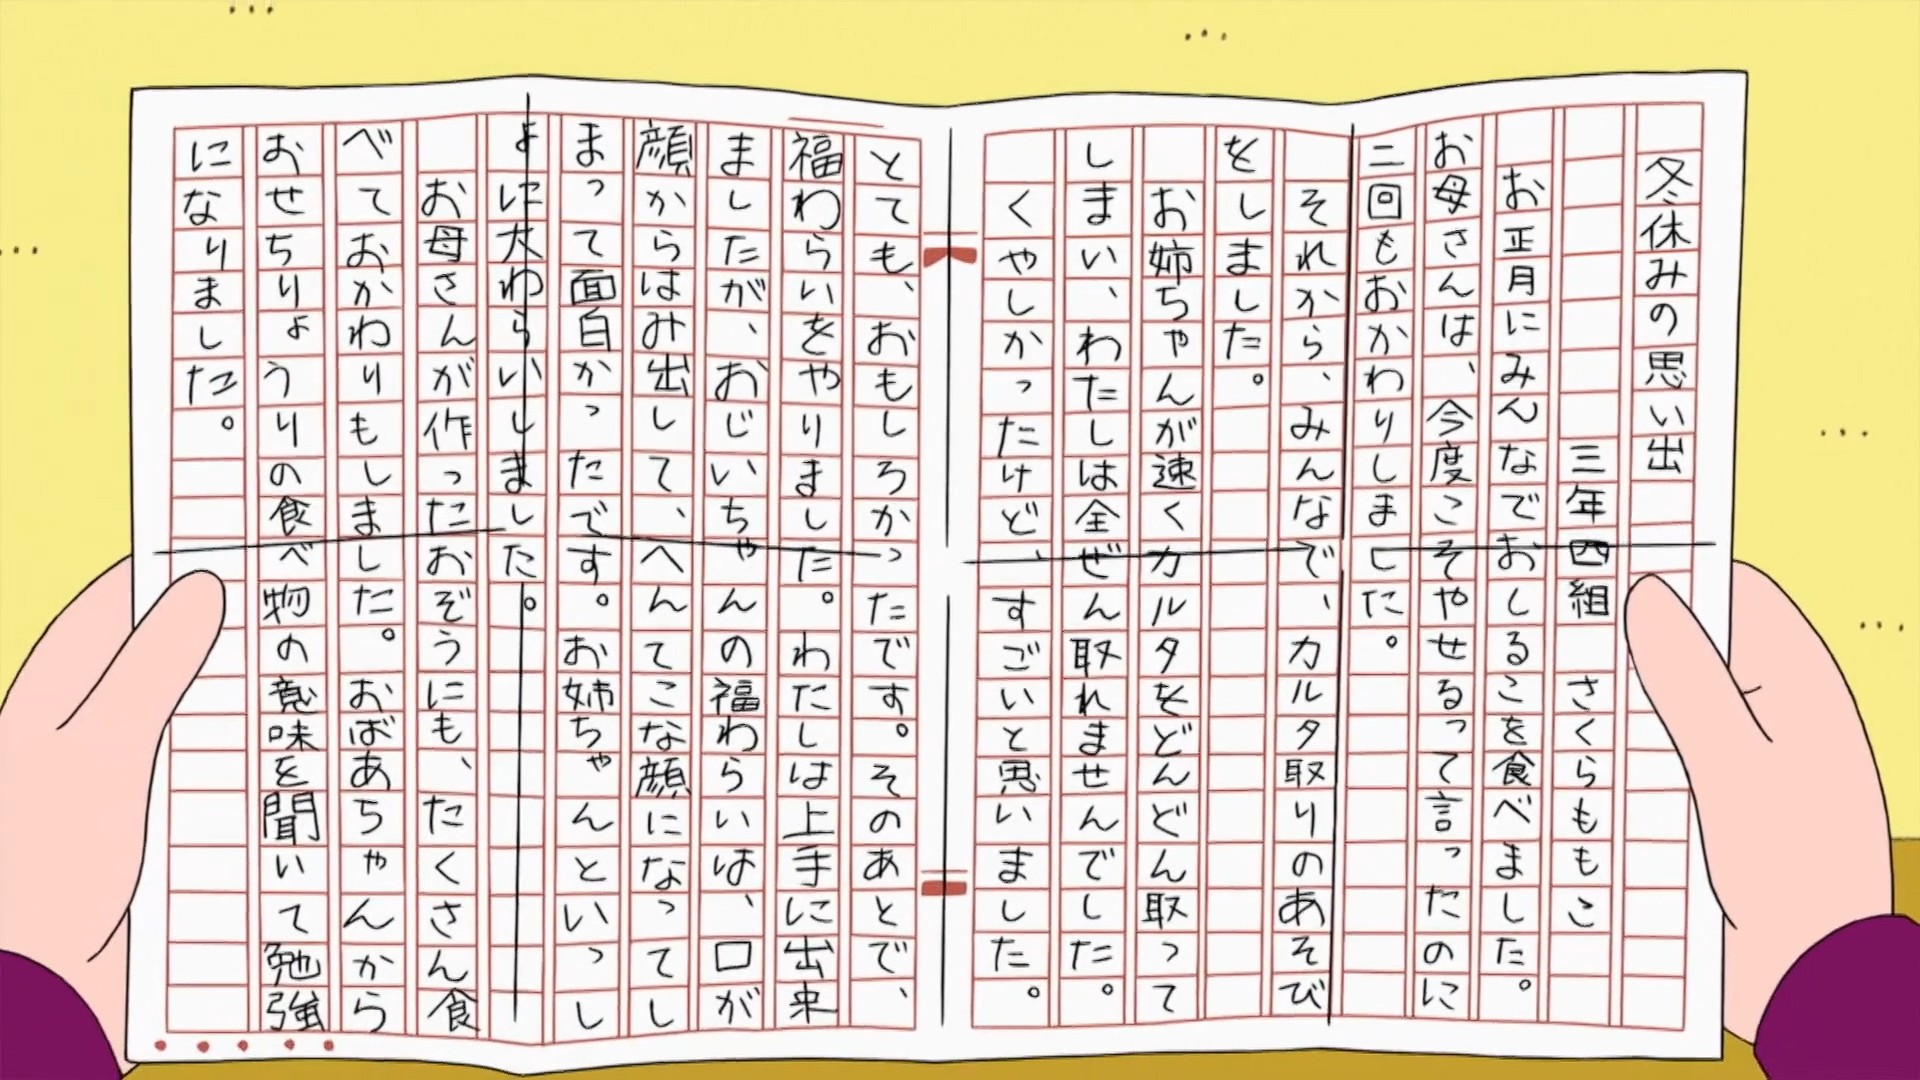 冬休みの思い出
三年四組 さくらももこ
お正月にみんなでおしるこを食べました。
お母さんは、今度こそやせるって言ったのに
二回もおかわりしました。
それから、みんなで、カルタ取りのあそび
をしました。
お姉ちゃんが速くカルタをどんどん取って
しまい、わたしは全ぜん取れませんでした。
くやしかったけど、すごいと思いました。
とても、おもしろかったです。そのあとで、
福わらいをやりました。わたしは上手に出来
ましたが、おじいちゃんの福わらいは、口が
顔からはみ出して、へんてこな顔になってし
まって面白かったです。お姉ちゃんといっし
ょに大わらいしました。
お母さんが作ったおぞうにも、たくさん食
べておかわりもしました。おばあちゃんから
おせちりょうりの食べ物の意味を聞いて勉強
になりました。